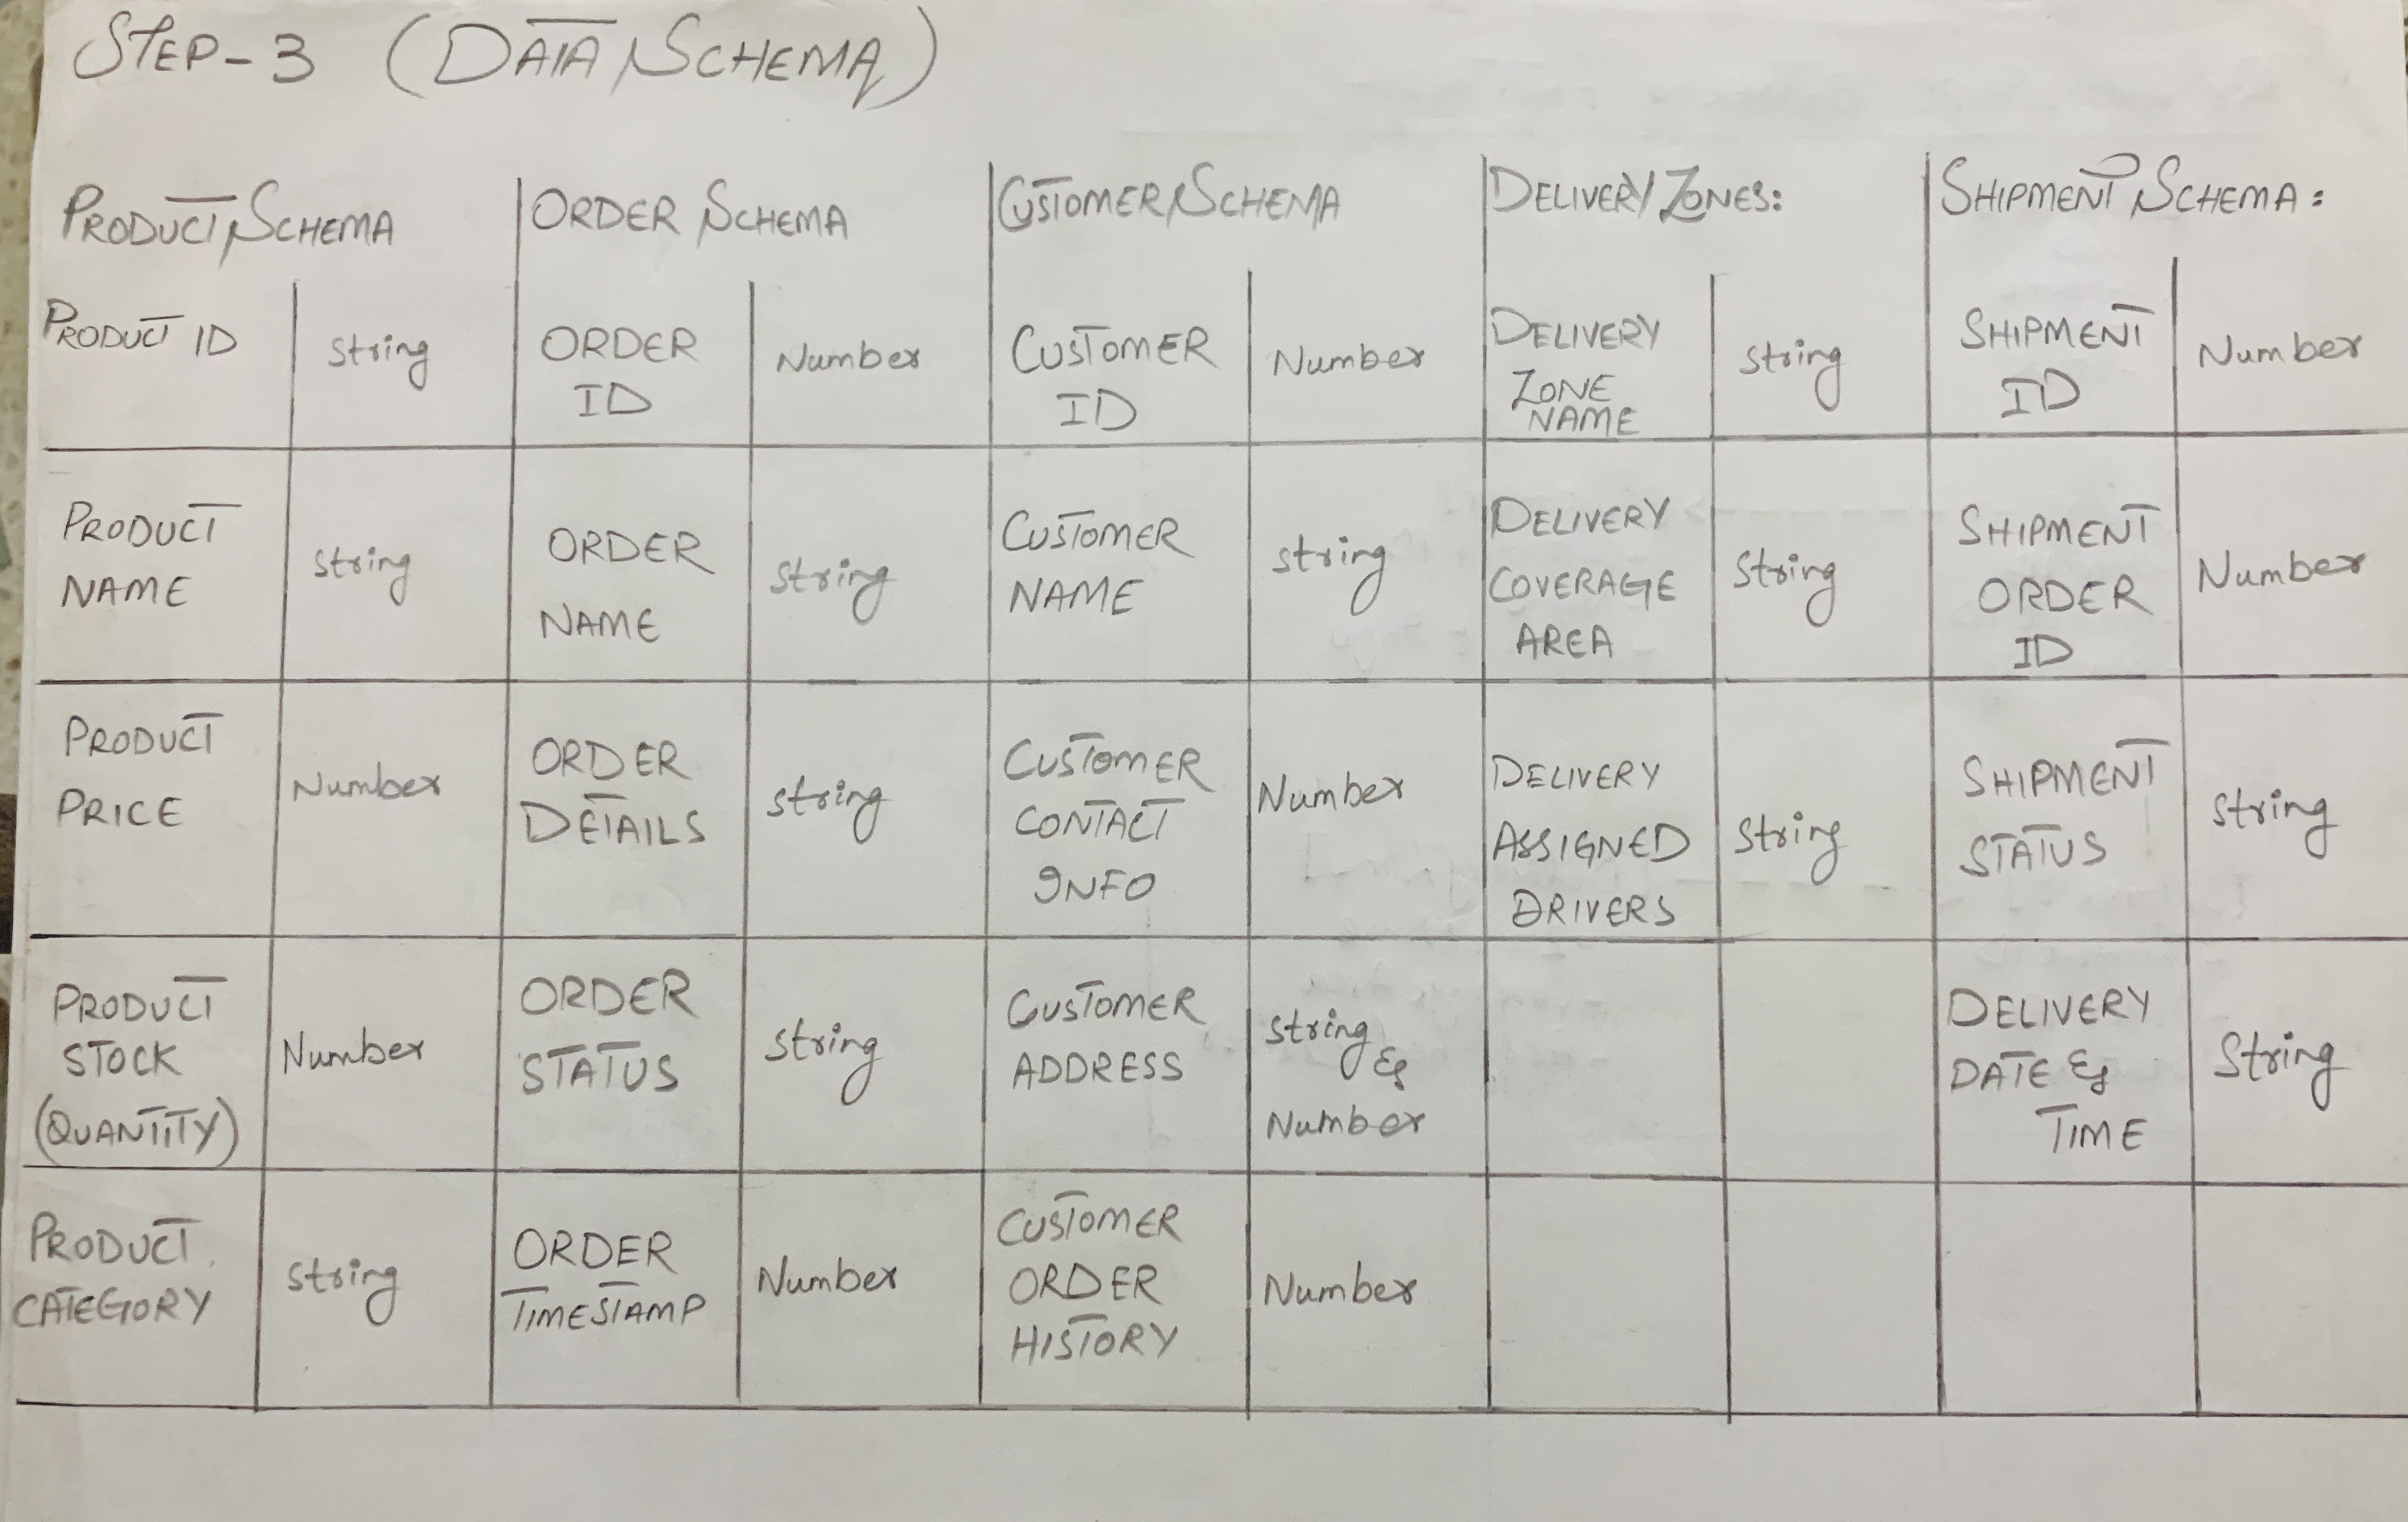 STEP-3 (DATA SCHEMA)
PRODUCT SCHEMA
ORDER SCHEMA
CUSTOMER SCHEMA
DELIVERY ZONES:
SHIPMENT SCHEMA:
PRODUCT ID
String
ORDER
ID
Number
CUSTOMER
ID
Number
DELIVERY
ZONE
NAME
String
SHIPMENT
ID
Number
PRODUCT
NAME
String
ORDER
NAME
String
CUSTOMER
NAME
String
DELIVERY
COVERAGE
AREA
String
SHIPMENT
ORDER
ID
Number
PRODUCT
PRICE
Number
ORDER
DETAILS
String
CUSTOMER
CONTACT
INFO
Number
DELIVERY
ASSIGNED
DRIVERS
String
SHIPMENT
STATUS
String
PRODUCT
STOCK
(QUANTITY)
Number
ORDER
STATUS
String
CUSTOMER
ADDRESS
String &
Number
DELIVERY
DATE &
TIME
String
PRODUCT
CATEGORY
String
ORDER
TIMESTAMP
Number
CUSTOMER
ORDER
HISTORY
Number